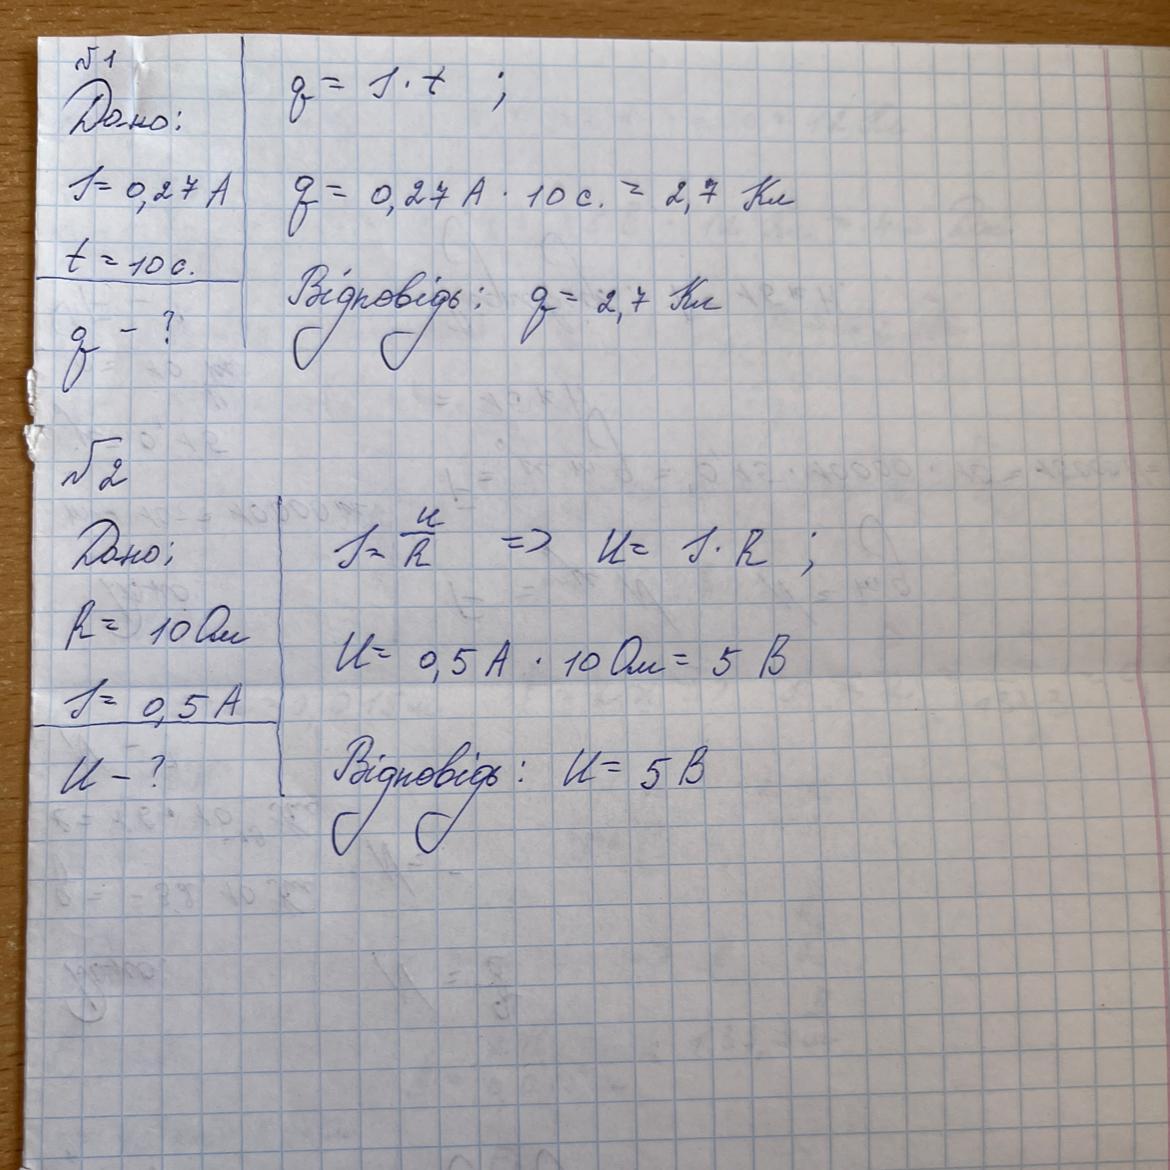 №1
Дано:
I = 0,27 А
t = 10 с.
q - ?
q = I · t ;
q = 0,27 А · 10 с. = 2,7 Кл
Відповідь: q = 2,7 Кл
№2
Дано:
R = 10 Ом
I = 0,5 А
U - ?
I = U/R => U = I · R ;
U = 0,5 А · 10 Ом = 5 В
Відповідь: U = 5 В